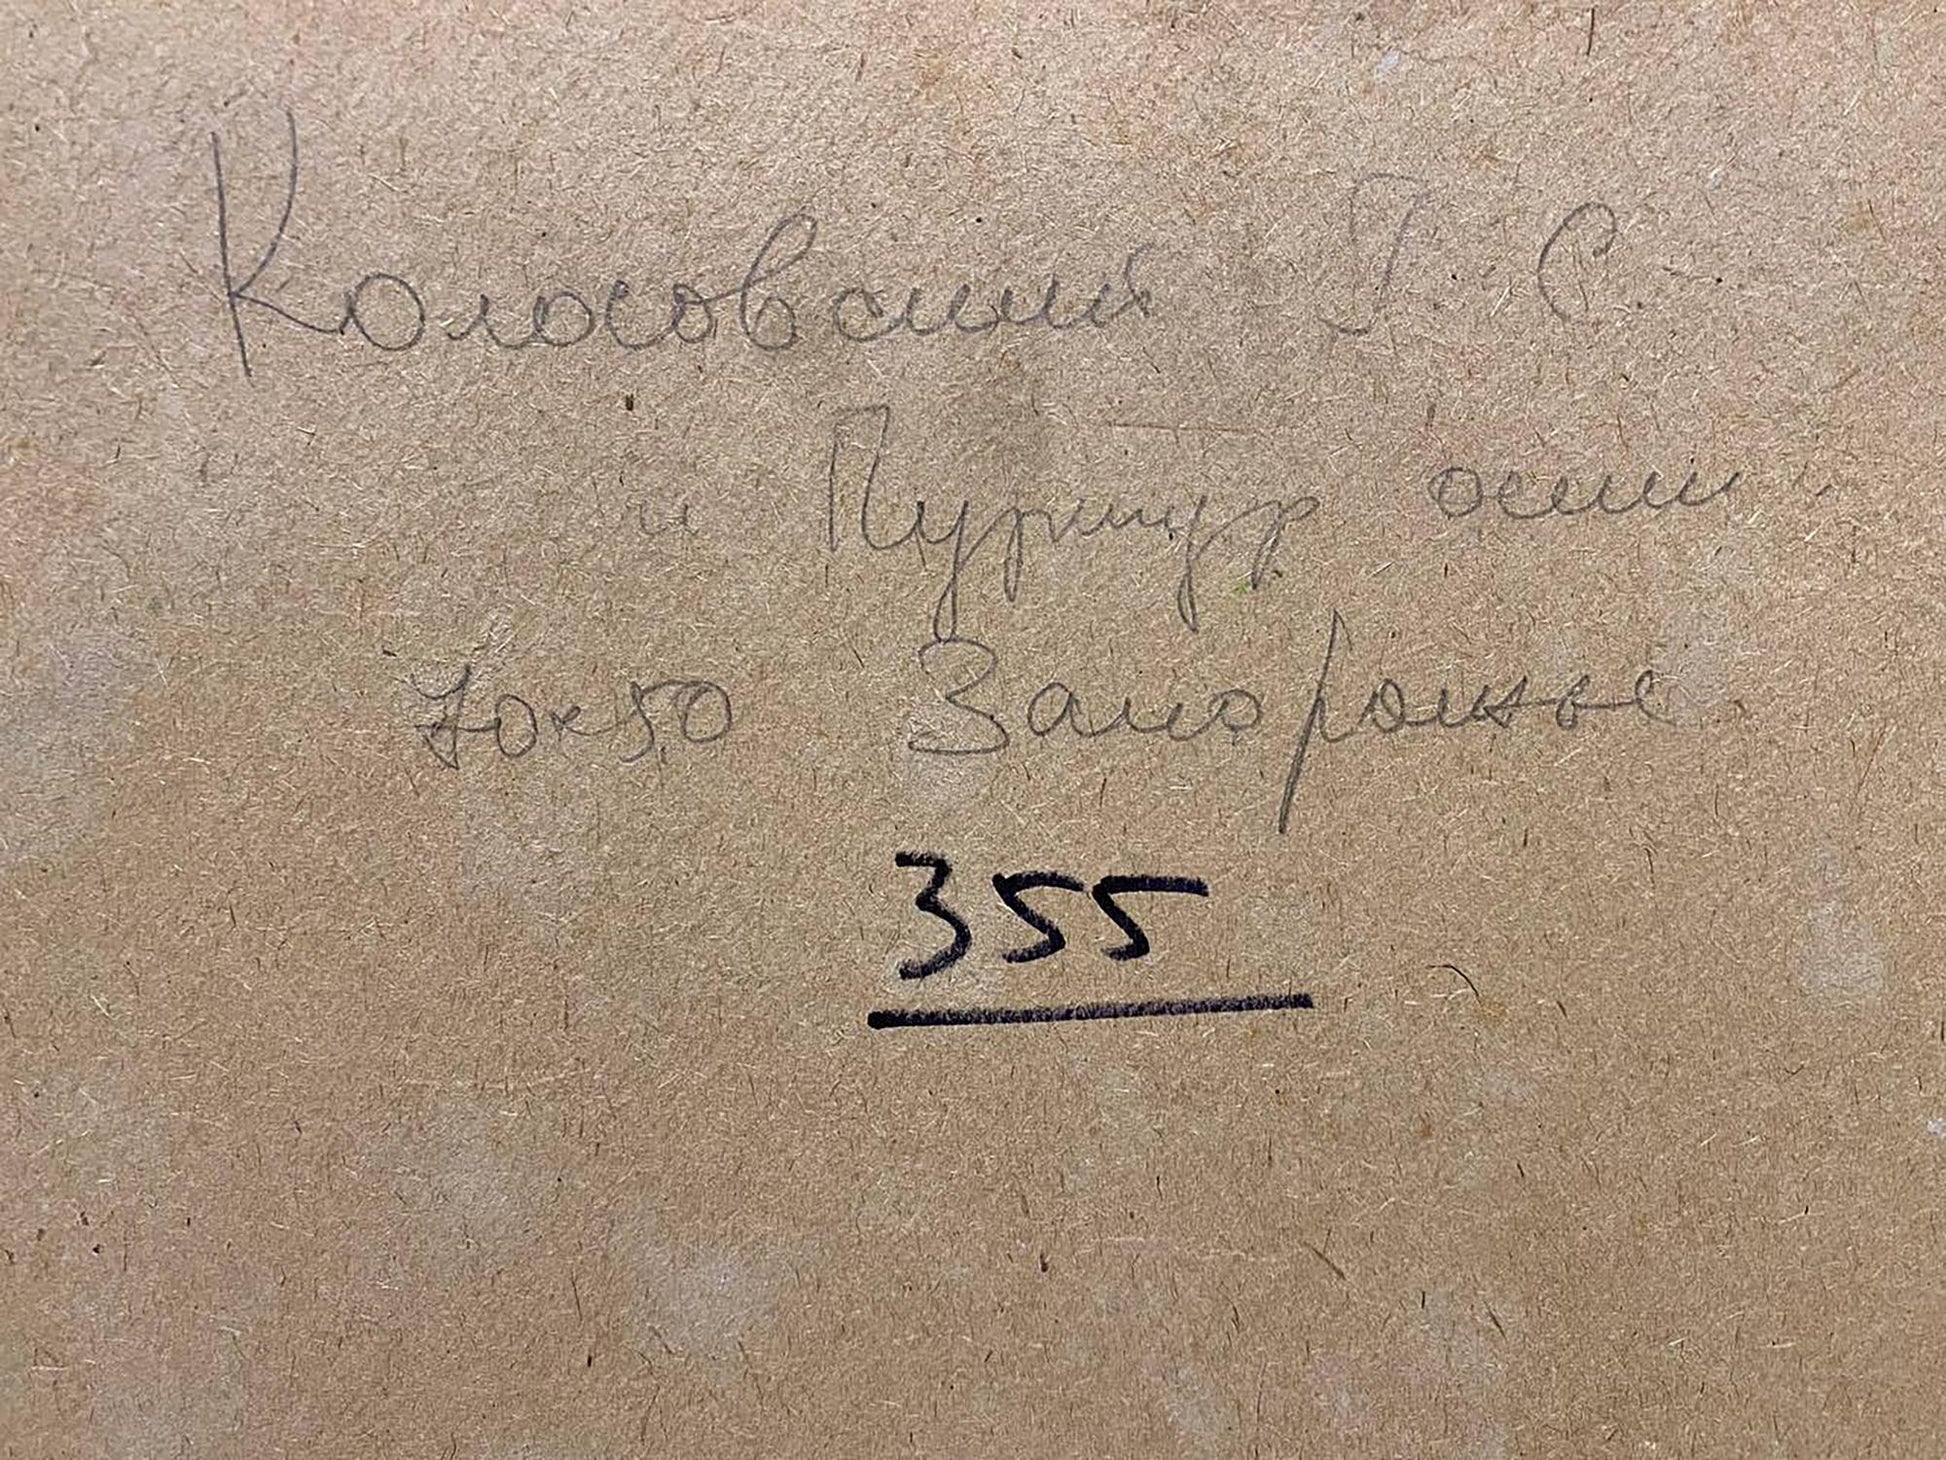 Колосовский Г. С.
" Пурпур осени "
70х50 Запорожье.
355